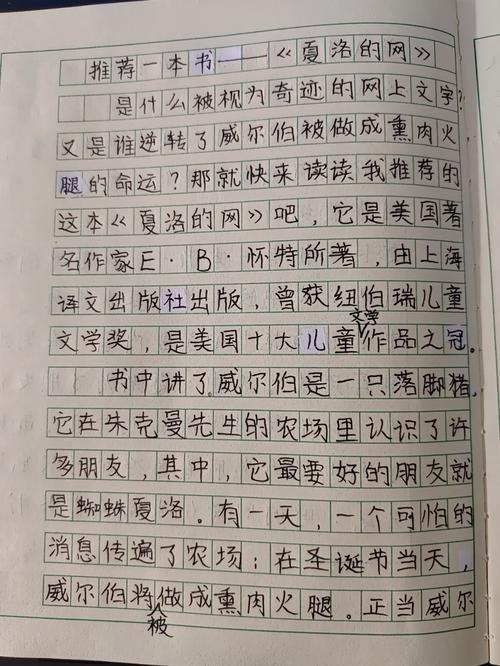 推荐一本书——《夏洛的网》
是什么被视为奇迹的网上文字?
又是谁逆转了威尔伯被做成熏肉火
腿的命运?那就快来读读我推荐的
这本《夏洛的网》吧,它是美国著
名作家E·B·怀特所著,由上海
译文出版社出版,曾获纽伯瑞儿童
文学奖,是美国十大儿童文学作品之冠。
书中讲了威尔伯是一只落脚猪,
它在朱克曼先生的农场里认识了许
多朋友,其中,它最要好的朋友就
是蜘蛛夏洛。有一天,一个可怕的
消息传遍了农场:在圣诞节当天,
威尔伯将被做成熏肉火腿。正当威尔